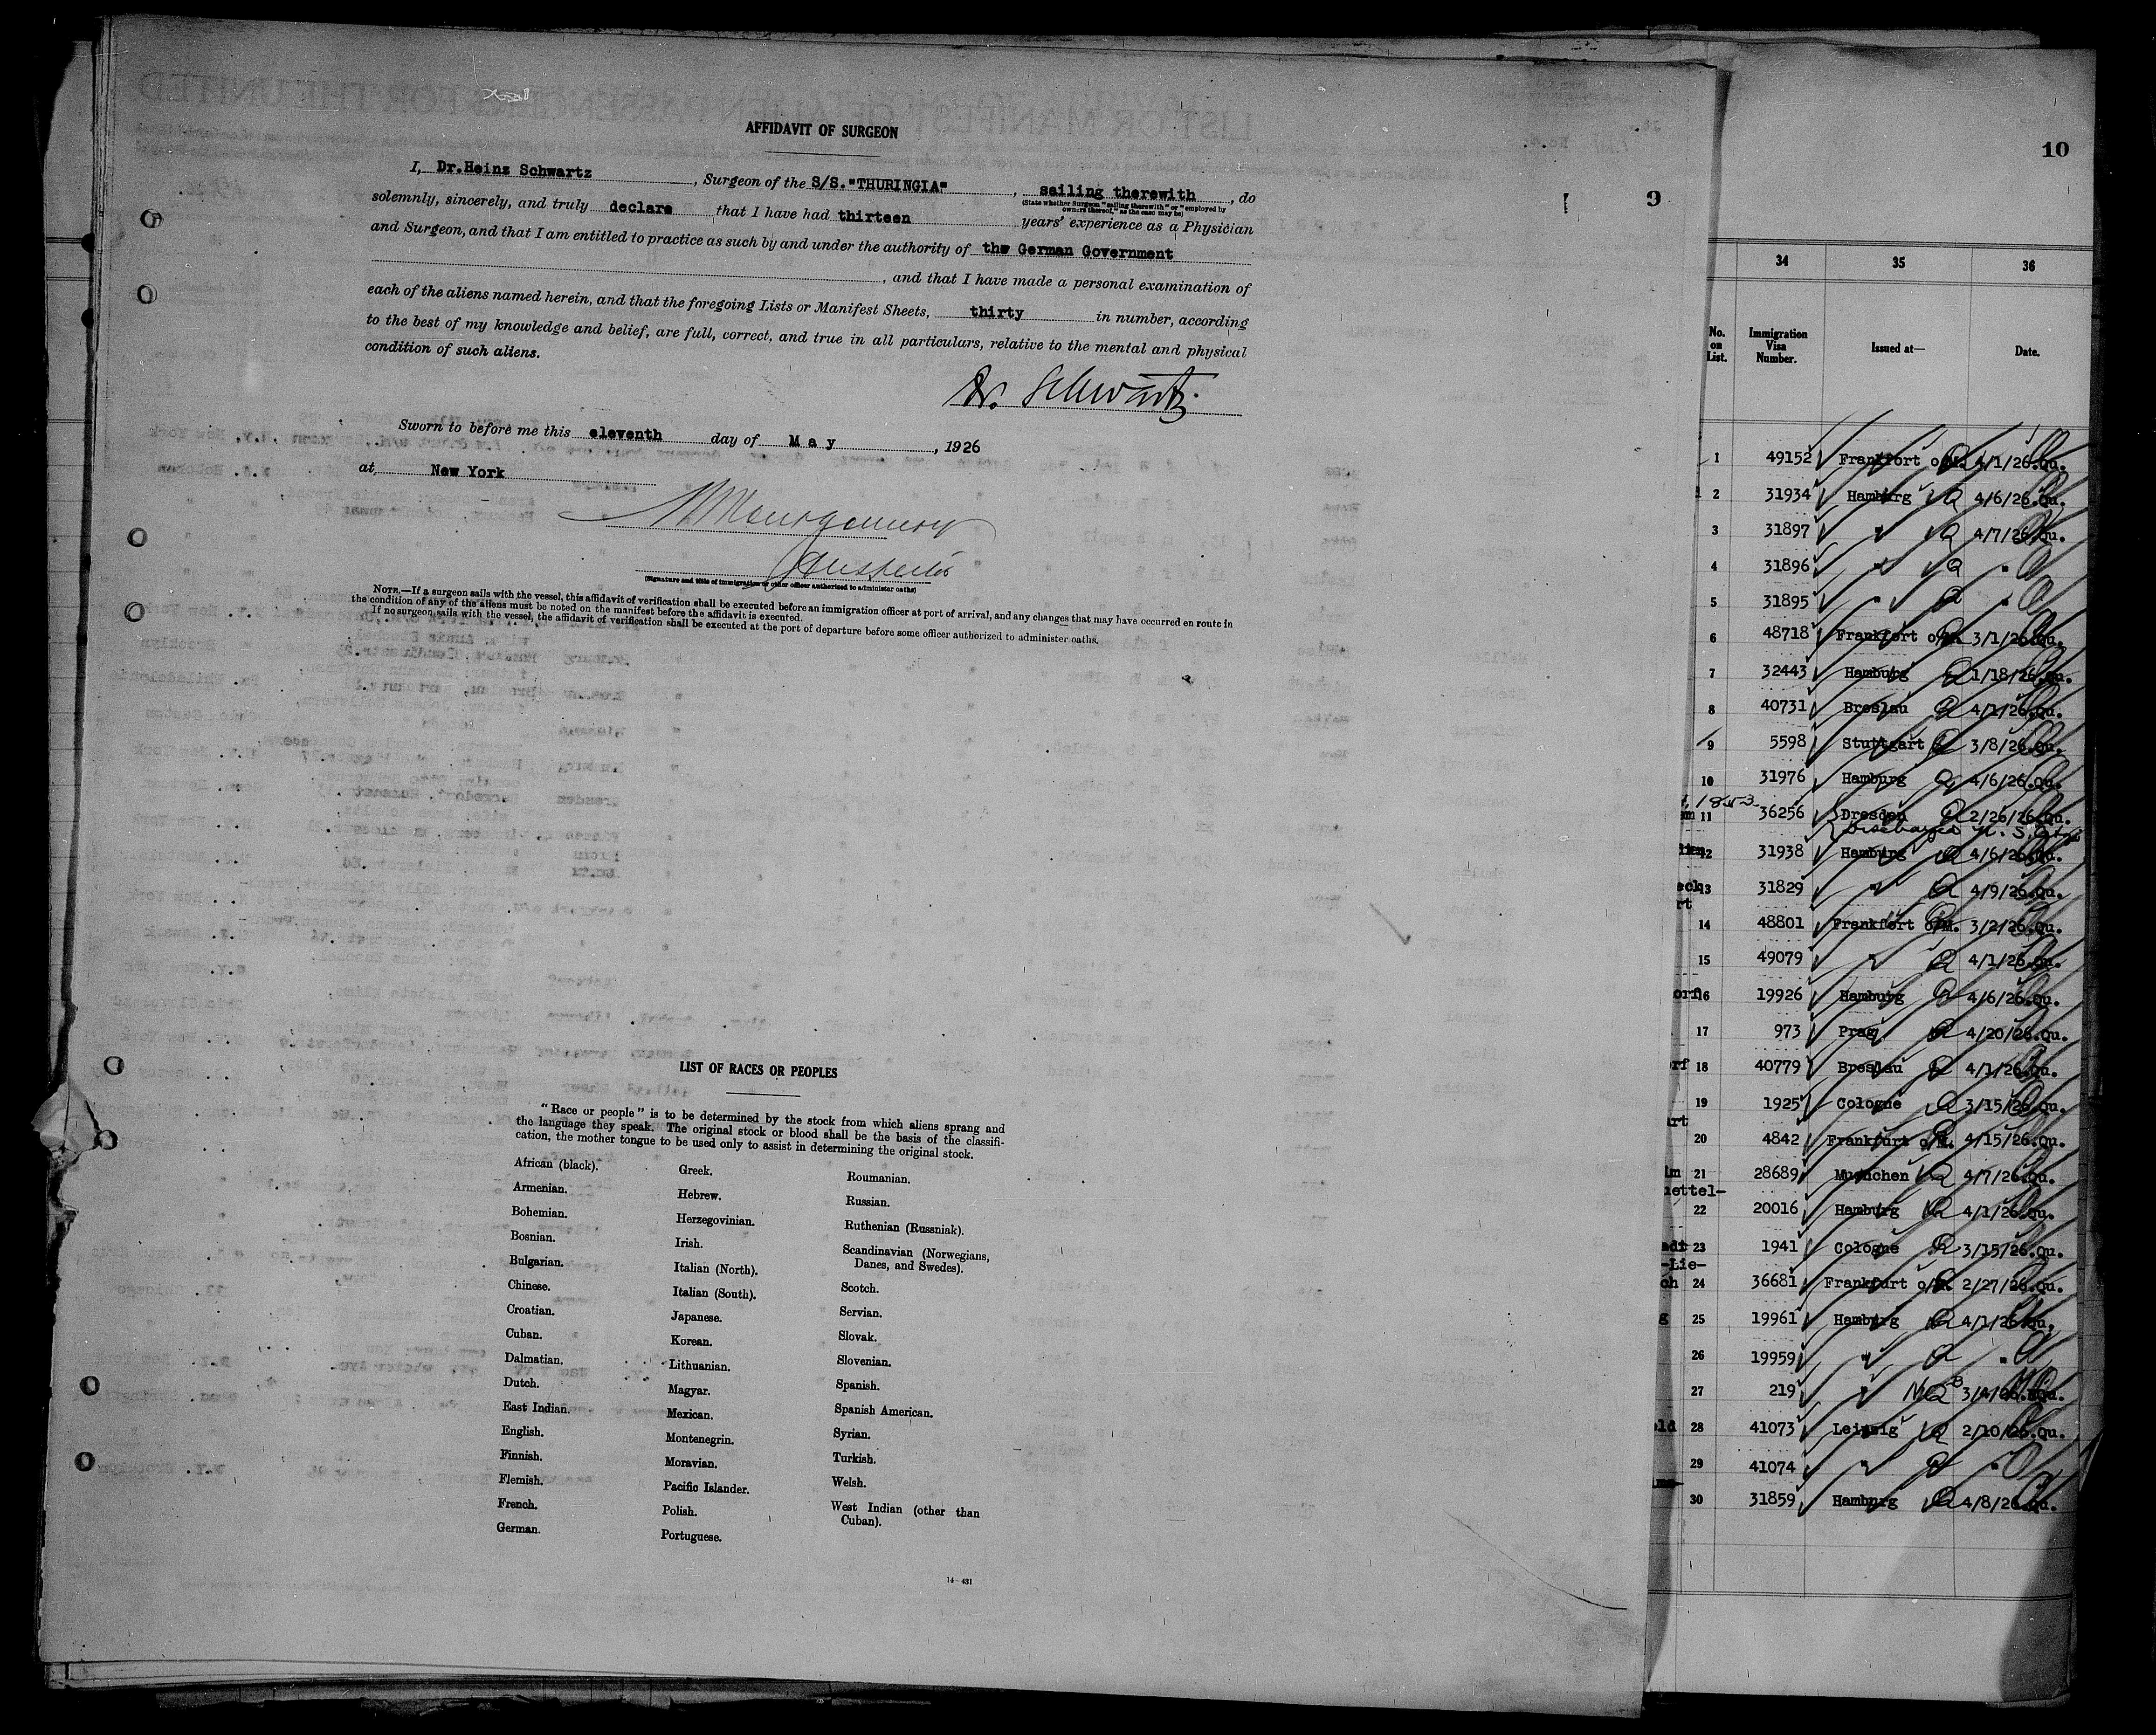 AFFIDAVIT OF SURGEON
I, Dr.Heinz Schwartz, Surgeon of the S/S."THURINGIA", sailing therewith, do
(State whether Surgeon "sailing therewith" or "employed by
owners thereof," as the case may be)
solemnly, sincerely, and truly declare that I have had thirteen years' experience as a Physician
and Surgeon, and that I am entitled to practice as such by and under the authority of the German Government
, and that I have made a personal examination of
each of the aliens named herein, and that the foregoing Lists or Manifest Sheets, thirty in number, according
to the best of my knowledge and belief, are full, correct, and true in all particulars, relative to the mental and physical
condition of such aliens.
Dr. Schwartz.
Sworn to before me this eleventh day of May, 1926
at New York
Montgomery
(Signature and title of immigration or other officer authorized to administer oaths)
NOTE.—If a surgeon sails with the vessel, this affidavit of verification shall be executed before an immigration officer at port of arrival, and any changes that may have occurred en route in
the condition of any of the aliens must be noted on the manifest before the affidavit is executed.
If no surgeon sails with the vessel, the affidavit of verification shall be executed at the port of departure before some officer authorized to administer oaths.
LIST OF RACES OR PEOPLES
"Race or people" is to be determined by the stock from which aliens sprang and
the language they speak. The original stock or blood shall be the basis of the classifi-
cation, the mother tongue to be used only to assist in determining the original stock.
African (black).
Armenian.
Bohemian.
Bosnian.
Bulgarian.
Chinese.
Croatian.
Cuban.
Dalmatian.
Dutch.
East Indian.
English.
Finnish.
Flemish.
French.
German.
Greek.
Hebrew.
Herzegovinian.
Irish.
Italian (North).
Italian (South).
Japanese.
Korean.
Lithuanian.
Magyar.
Mexican.
Montenegrin.
Moravian.
Pacific Islander.
Polish.
Portuguese.
Roumanian.
Russian.
Ruthenian (Russniak).
Scandinavian (Norwegians,
Danes, and Swedes).
Scotch.
Servian.
Slovak.
Slovenian.
Spanish.
Spanish American.
Syrian.
Turkish.
Welsh.
West Indian (other than
Cuban).
14—431
9
10
34 35 36
No. on List. Immigration Visa Number. Issued at— Date.
1 49152 Frankfort o/M. 4/1/26.Qu.
2 31934 Hamburg 4/6/26.Qu.
3 31897 " 4/7/26.Qu.
4 31896 " "
5 31895 " "
6 48718 Frankfort o/M. 3/1/26.Qu.
7 32443 Hamburg 1/18/26.Qu.
8 40731 Breslau 4/1/26.Qu.
9 5598 Stuttgart 3/8/26.Qu.
10 31976 Hamburg 4/6/26.Qu.
11 36256 Dresden 2/26/26.Qu.
12 31938 Hamburg 4/6/26.Qu.
13 31829 " 4/9/26.Qu.
14 48801 Frankfort o/M. 3/2/26.Qu.
15 49079 " 4/1/26.Qu.
16 19926 Hamburg 4/6/26.Qu.
17 973 Prag 4/20/26.Qu.
18 40779 Breslau 4/1/26.Qu.
19 1925 Cologne 3/15/26.Qu.
20 4842 Frankfurt o/M. 4/15/26.Qu.
21 28689 Muenchen 4/7/26.Qu.
22 20016 Hamburg 4/1/26.Qu.
23 1941 Cologne 3/15/26.Qu.
24 36681 Frankfurt o/M. 2/27/26.Qu.
25 19961 Hamburg 4/1/26.Qu.
26 19959 " "
27 219 " 3/4/26.NQu.
28 41073 Leipzig 2/10/26.Qu.
29 41074 " "
30 31859 Hamburg 4/8/26.Qu.